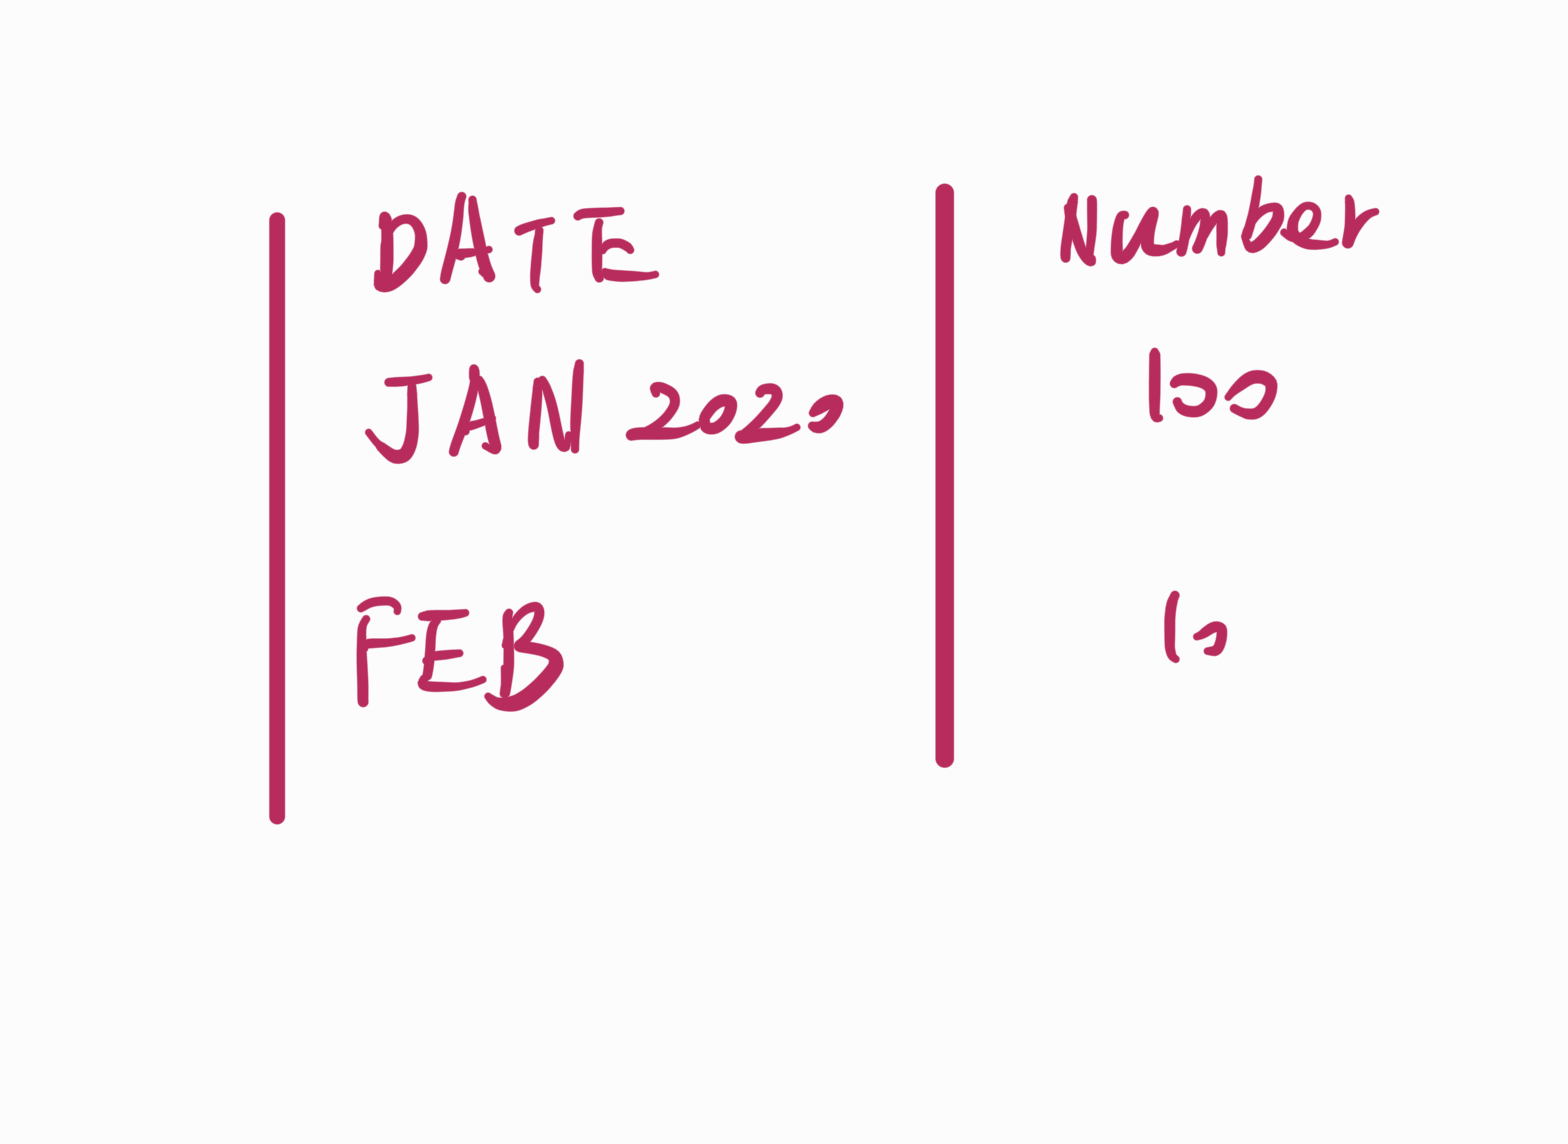 DATE Number
JAN 2020 100
FEB 10